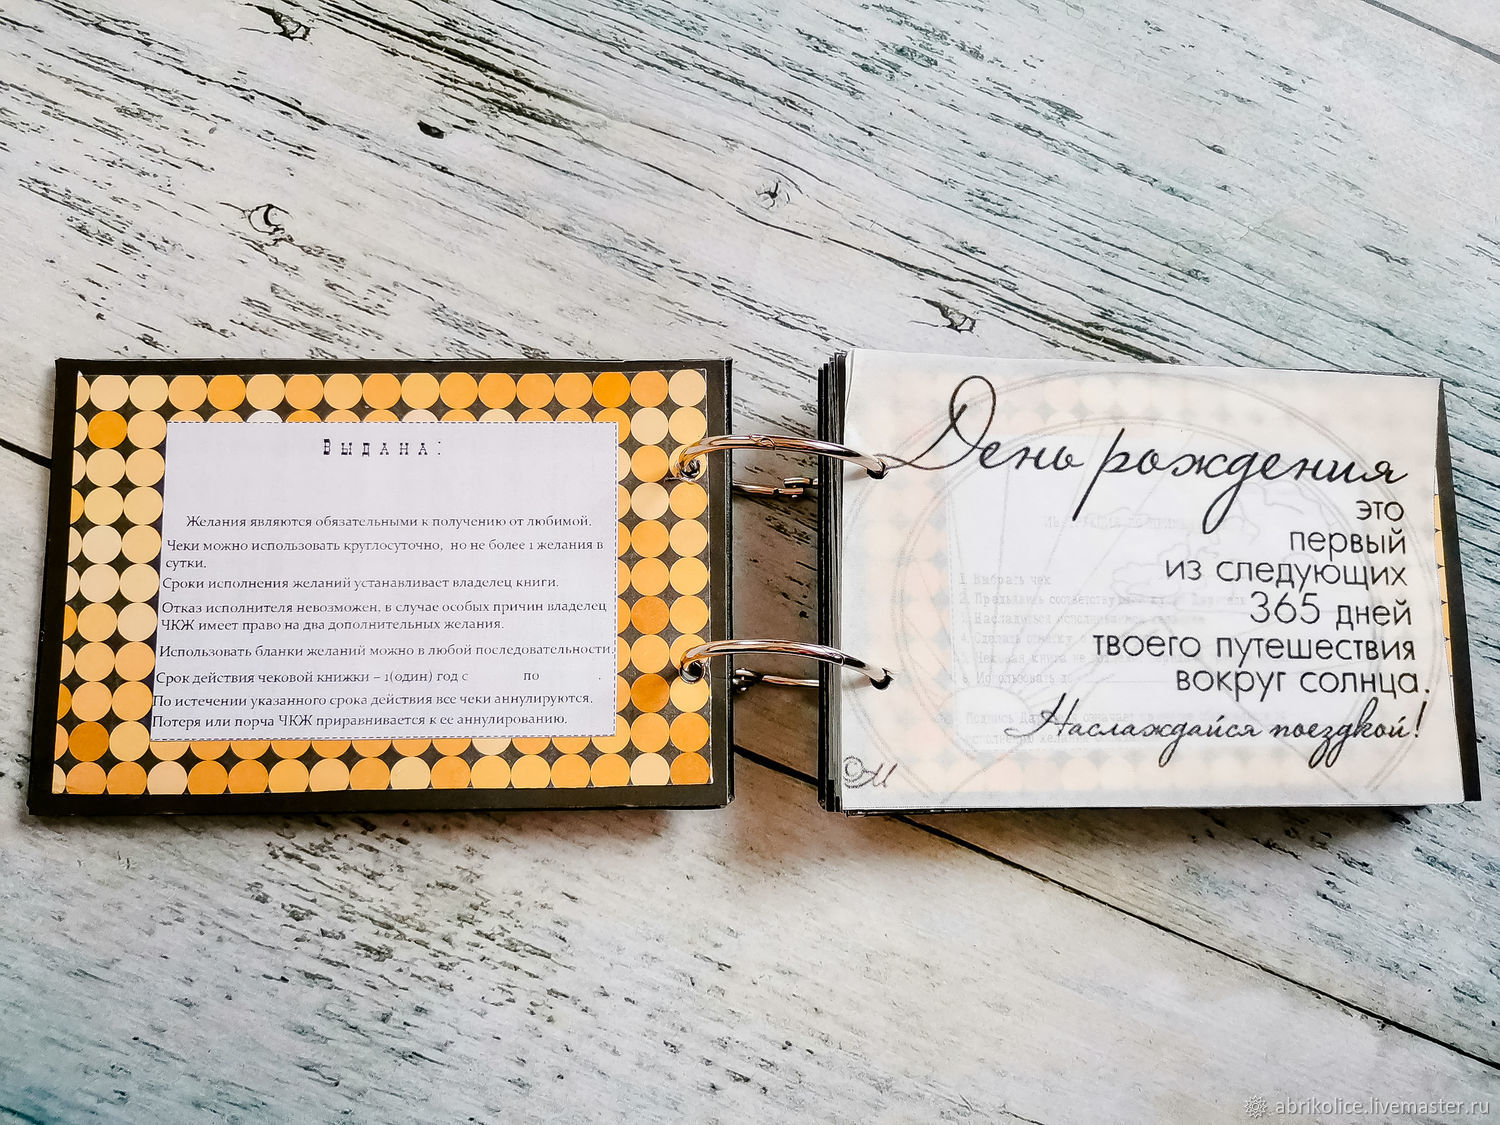 Выдана:
Желания являются обязательными к получению от любимой.
Чеки можно использовать круглосуточно, но не более 1 желания в
сутки.
Сроки исполнения желаний устанавливает владелец книги.
Отказ исполнителя невозможен, в случае особых причин владелец
ЧКЖ имеет право на два дополнительных желания.
Использовать бланки желаний можно в любой последовательности.
Срок действия чековой книжки – 1(один) год с по .
По истечении указанного срока действия все чеки аннулируются.
Потеря или порча ЧКЖ приравнивается к ее аннулированию.
День рождения
это
первый
из следующих
365 дней
твоего путешествия
вокруг солнца.
Наслаждайся поездкой!
©М
1. Выбрать чек
abrikolice.livemaster.ru